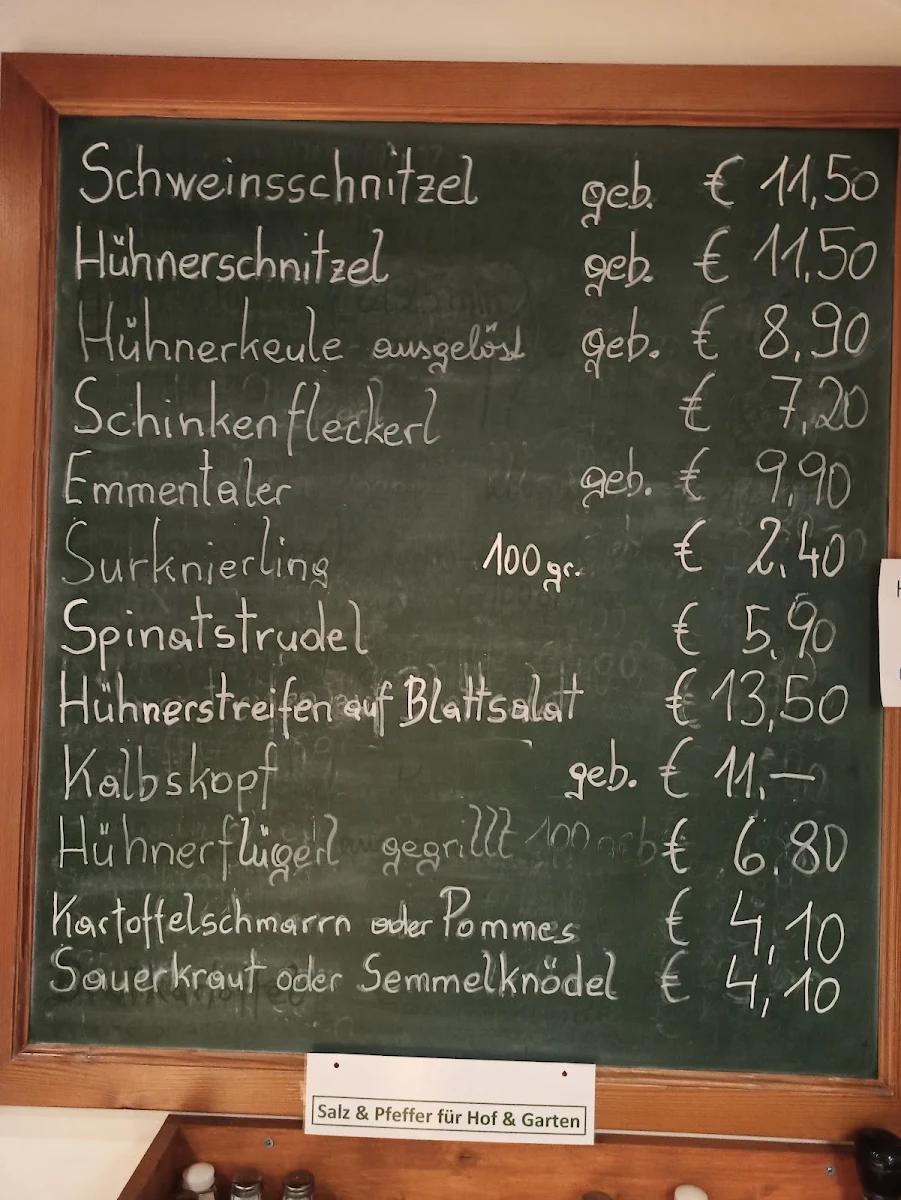 Schweinsschnitzel geb. € 11,50
Hühnerschnitzel geb. € 11,50
Hühnerkeule ausgelöst geb. € 8,90
Schinkenfleckerl € 7,20
Emmentaler geb. € 9,90
Surknierling 100 gr. € 2,40
Spinatstrudel € 5,90
Hühnerstreifen auf Blattsalat € 13,50
Kalbskopf geb. € 11,—
Hühnerflügerl gegrillt € 6,80
Kartoffelschmarrn oder Pommes € 4,10
Sauerkraut oder Semmelknödel € 4,10
Salz & Pfeffer für Hof & Garten